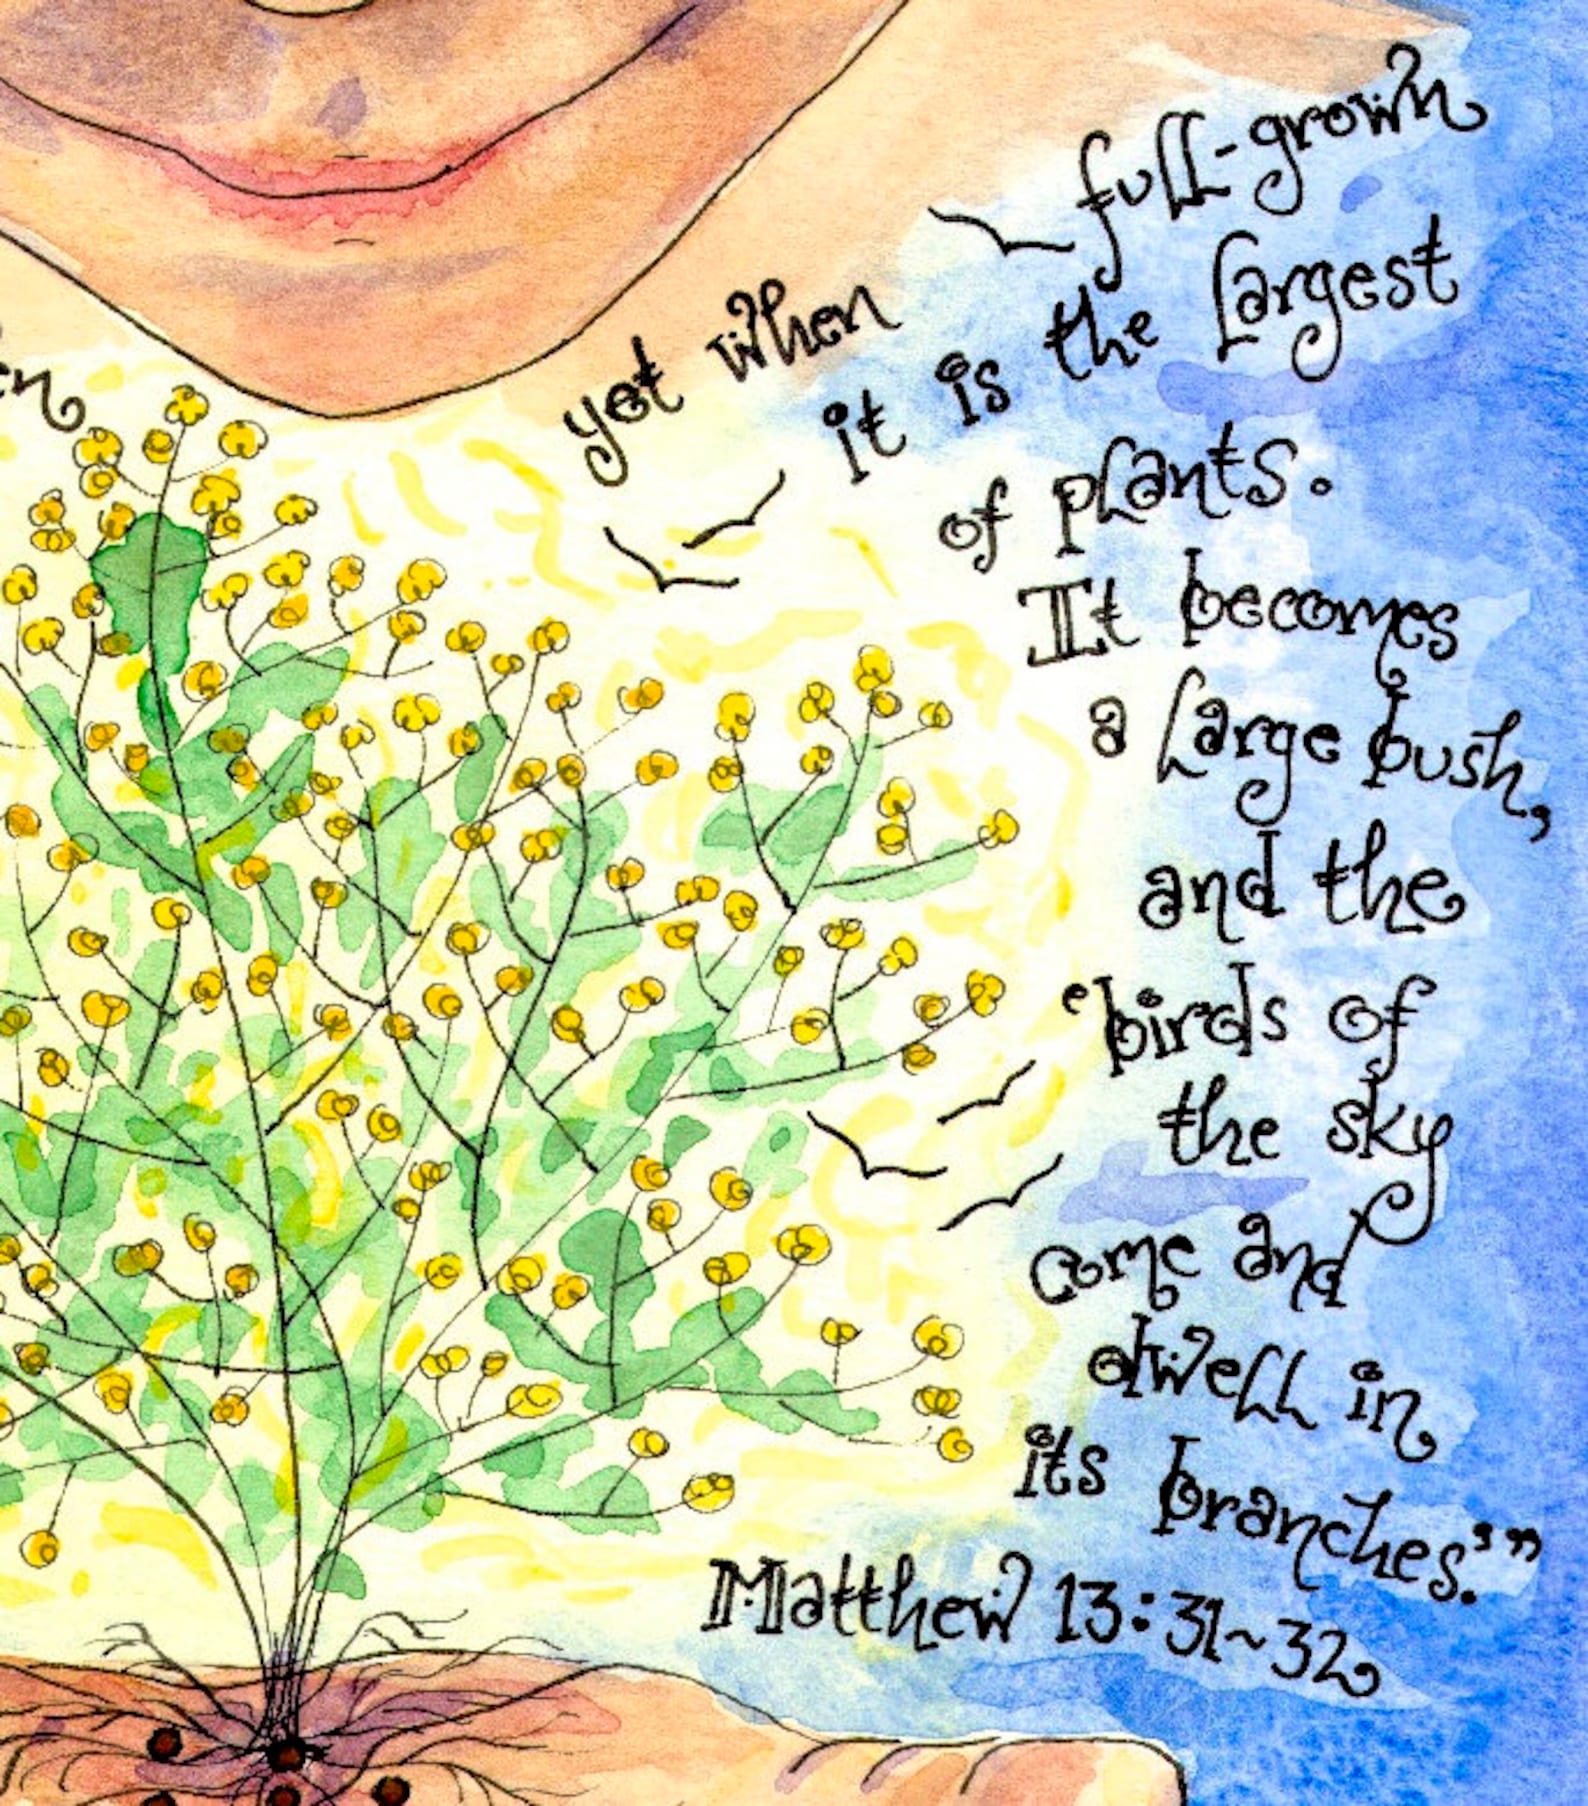 yet when
full-grown
it is the largest
of plants.
It becomes
a large bush,
and the
'birds of
the sky
come and
dwell in
its branches.'"
Matthew 13:31~32